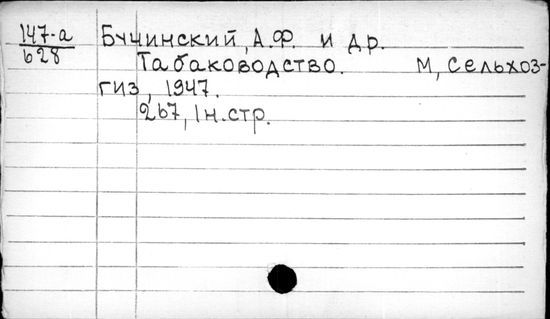 147-а Бучинский, А.Ф. и др.
628 Табаководство. М, Сельхоз-
гиз, 1947.
267, 1 н.стр.